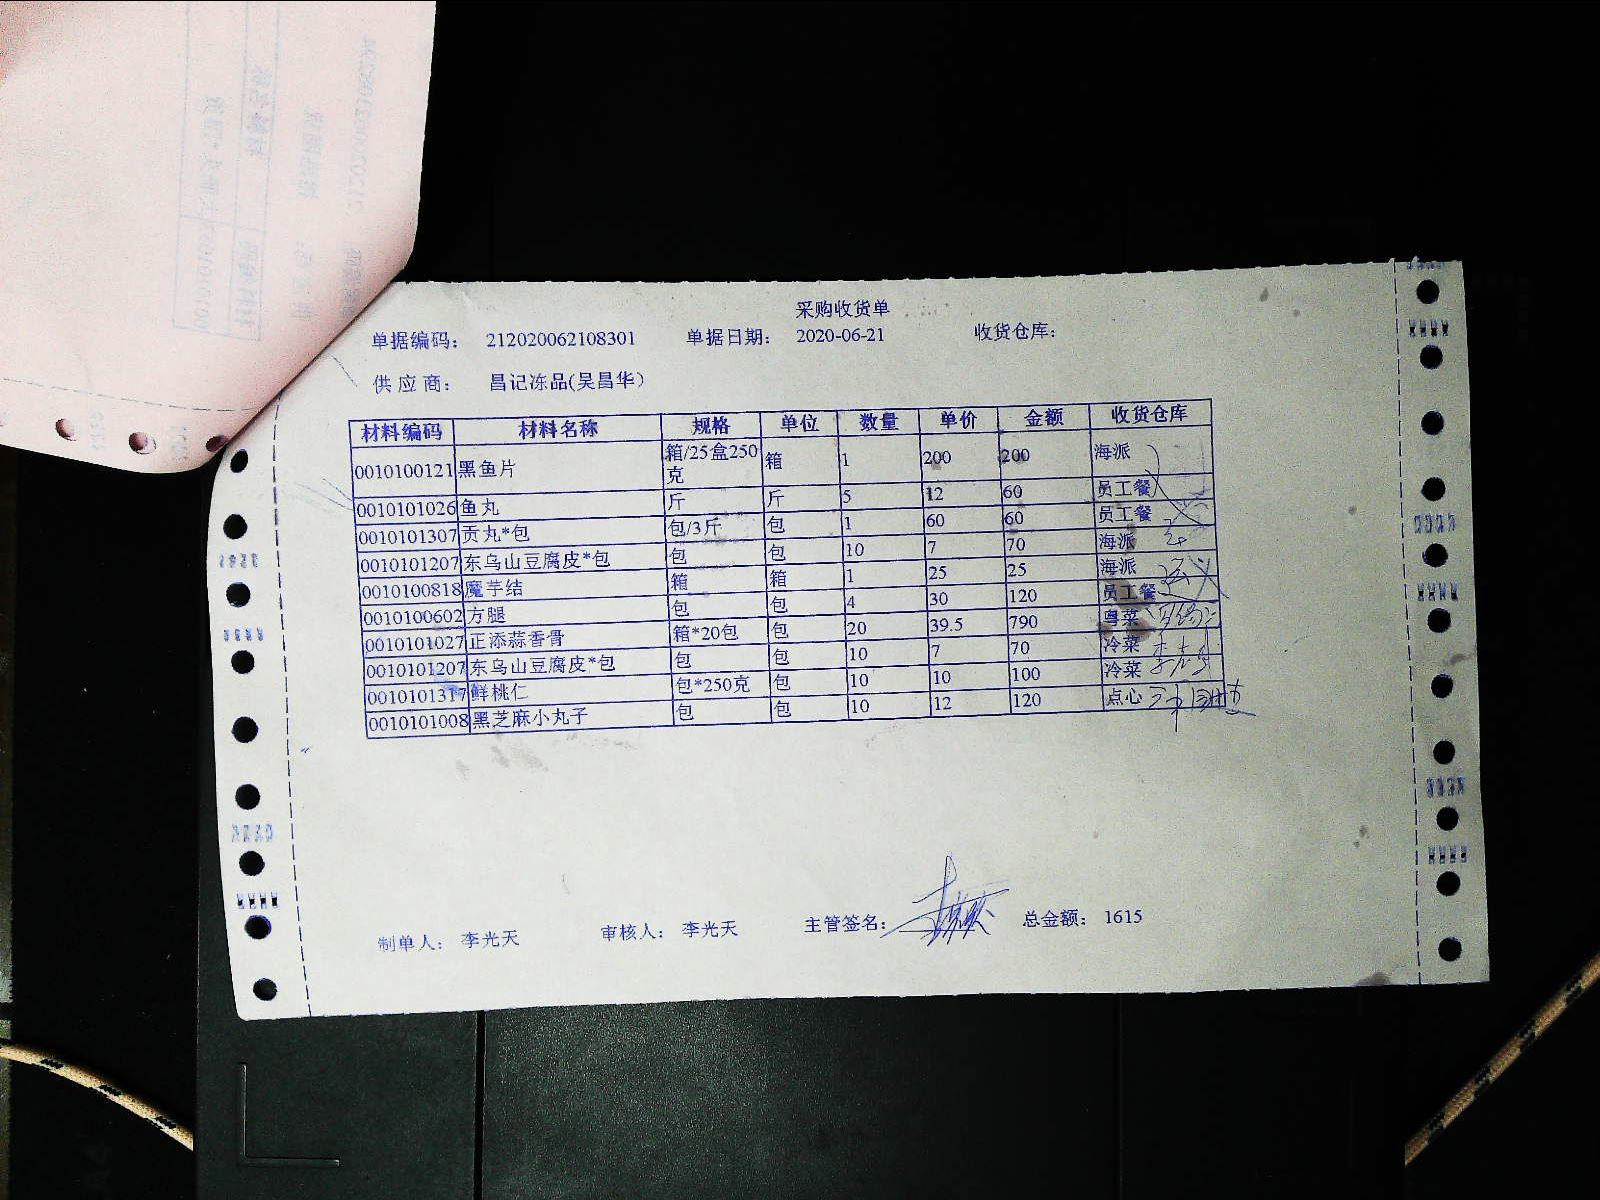 采购收货单
单据编码： 212020062108301 单据日期： 2020-06-21 收货仓库：
供应商： 昌记冻品(吴昌华）
材料编码 材料名称 规格 单位 数量 单价 金额 收货仓库
0010100121 黑鱼片 箱/25盒250克 箱 1 200 200 海派
0010101026 鱼丸 斤 斤 5 12 60 员工餐
0010101307 贡丸*包 包/3斤 包 1 60 60 员工餐
0010101207 东乌山豆腐皮*包 包 包 10 7 70 海派
0010100818 魔芋结 箱 箱 1 25 25 海派
0010100602 方腿 包 包 4 30 120 员工餐
0010101027 正添蒜香骨 箱*20包 包 20 39.5 790 粤菜
0010101207 东乌山豆腐皮*包 包 包 10 7 70 冷菜
0010101317 鲜桃仁 包*250克 包 10 10 100 冷菜
0010101008 黑芝麻小丸子 包 包 10 12 120 点心
制单人： 李光天 审核人： 李光天 主管签名： 总金额： 1615